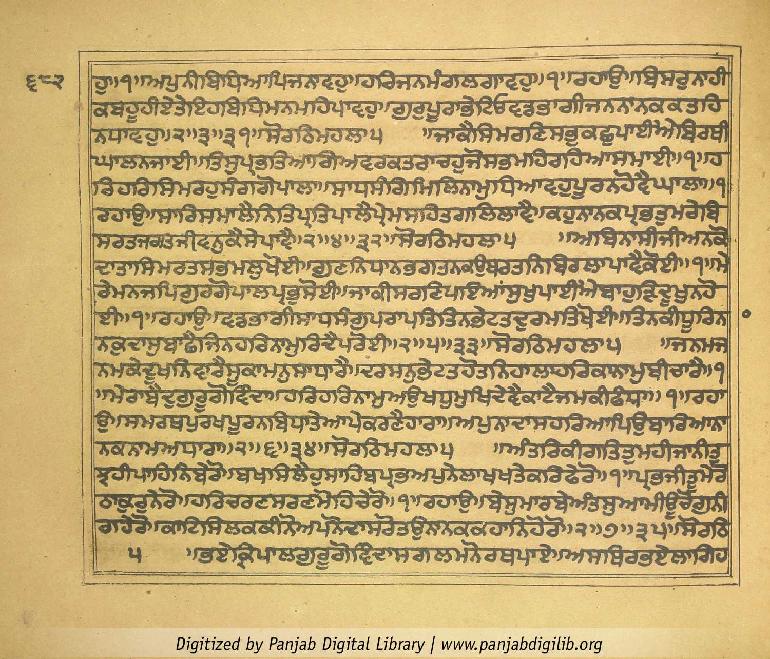 ੬੮੨
ਹੁ॥੧॥ਅਪੁਨੀਬਿਧਿਆਪਿਜਨਾਵਹੁ॥ਹਰਿਜਨਮੰਗਲਗਾਵਹੁ॥੧॥ਰਹਾਉ॥ਬਿਸਰੁਨਾਹੀ
ਕਬਹੂਹੀਏਤੇਇਹਬਿਧਿਮਨਮਹਿਪਾਵਹੁ॥ਗੁਰੁਪੂਰਾਭੇਟਿਓਵਡਭਾਗੀਜਨਨਾਨਕਕਤਹਿ
ਨਧਾਵਹੁ॥੨॥੩॥੩੧॥ਸੋਰਠਿਮਹਲਾ੫ ॥ਜਾਕੈਸਿਮਰਣਿਸਭੁਕਛੁਪਾਈਐਬਿਰਥੀ
ਘਾਲਨਜਾਈ॥ਤਿਸੁਪ੍ਰਭਤਿਆਗਿਅਵਰਕਤਰਾਚਹੁਜੋਸਭਮਹਿਰਹਿਆਸਮਾਈ॥੧॥ਹ
ਰਿਹਰਿਸਿਮਰਹੁਸੰਤਗੋਪਾਲਾ॥ਸਾਧਸੰਗਿਮਿਲਿਨਾਮੁਧਿਆਵਹੁਪੂਰਨਹੋਵੈਘਾਲਾ॥੧
ਰਹਾਉ॥ਸਾਰਿਸਮਾਲੈਨਿਤਿਪ੍ਰਤਿਪਾਲੈਪ੍ਰੇਮਸਹਿਤਗਲਿਲਾਵੈ॥ਕਹੁਨਾਨਕਪ੍ਰਭਤੁਮਰੇਬਿ
ਸਰਤਜਗਤਜੀਵਨੁਕੈਸੇਪਾਵੈ॥੨॥੪॥੩੨॥ਸੋਰਠਿਮਹਲਾ੫ ॥ਅਬਿਨਾਸੀਜੀਅਨਕੋ
ਦਾਤਾਸਿਮਰਤਸਭਮਲੁਖੋਈ॥ਗੁਣਨਿਧਾਨਭਗਤਨਕਉਬਰਤਨਿਬਿਰਲਾਪਾਵੈਕੋਈ॥੧॥ਮੇ
ਰੇਮਨਜਪਿਗੁਰਗੋਪਾਲਪ੍ਰਭੁਸੋਈ॥ਜਾਕੀਸਰਣਿਪਾਇਆਂਸੁਖੁਪਾਈਐਬਾਹੁੜਿਦੂਖੁਨਹੋ
ਈ॥੧॥ਰਹਾਉ॥ਵਡਭਾਗੀਸਾਧਸੰਗੁਪਰਾਪਤਿਤਿਨਭੇਟਤਦੁਰਮਤਿਖੋਈ॥ਤਿਨਕੀਧੂਰਿਨਾ
ਨਕੁਦਾਸੁਬਾਛੈਜਿਨਹਰਿਨਾਮੁਰਿਦੈਪਰੋਈ॥੨॥੫॥੩੩॥ਸੋਰਠਿਮਹਲਾ੫ ॥ਜਨਮਜ
ਨਮਕੇਦੂਖਨਿਵਾਰੈਸੂਕਾਮਨੁਸਾਧਾਰੈ॥ਦਰਸਨੁਭੇਟਤਹੋਤਨਿਹਾਲਾਹਰਿਕਾਨਾਮੁਬੀਚਾਰੈ॥੧
॥ਮੇਰਾਬੈਦੁਗੁਰੂਗੋਵਿੰਦਾ॥ਹਰਿਹਰਿਨਾਮੁਅਉਖਧੁਮੁਖਿਦੇਵੈਕਾਟੈਜਮਕੀਫੰਧਾ॥੧॥ਰਹਾ
ਉ॥ਸਮਰਥਪੁਰਖਪੂਰਨਬਿਧਾਤੇਆਪੇਕਰਣੈਹਾਰਾ॥ਅਪੁਨਾਦਾਸਹਰਿਆਪਿਉਬਾਰਿਆਨਾ
ਨਕਨਾਮਅਧਾਰਾ॥੨॥੬॥੩੪॥ਸੋਰਠਿਮਹਲਾ੫ ॥ਅੰਤਰਿਕੀਗਤਿਤੁਮਹੀਜਾਨੀਤੁ
ਝਹੀਪਾਹਿਨਿਬੇਰੋ॥ਬਖਸਿਲੈਹੁਸਾਹਿਬਪ੍ਰਭਅਪਨੇਲਾਖਖਤੇਕਰਿਫੇਰੋ॥੧॥ਪ੍ਰਭਜੀਤੂਮੇਰੋ
ਠਾਕੁਰੁਨੇਰੋ॥ਹਰਿਚਰਣਸਰਣਮੋਹਿਚੇਰੋ॥੧॥ਰਹਾਉ॥ਬੇਸੁਮਾਰਬੇਅੰਤਸੁਆਮੀਊਚੋਗੁਨੀ
ਗਹੇਰੋ॥ਕਾਟਿਸਿਲਕਕੀਨੋਅਪਨੋਦਾਸਰੋਤਉਨਾਨਕਕਹਾਨਿਹੋਰੋ॥੨॥੭॥੩੫॥ਸੋਰਠਿ
੫ ॥ਭਏਕ੍ਰਿਪਾਲਗੁਰੂਗੋਵਿੰਦਾਸਗਲਮਨੋਰਥਪਾਏ॥ਅਸਥਿਰਭਏਲਾਗਿਹ
Digitized by Panjab Digital Library | www.panjabdigilib.org